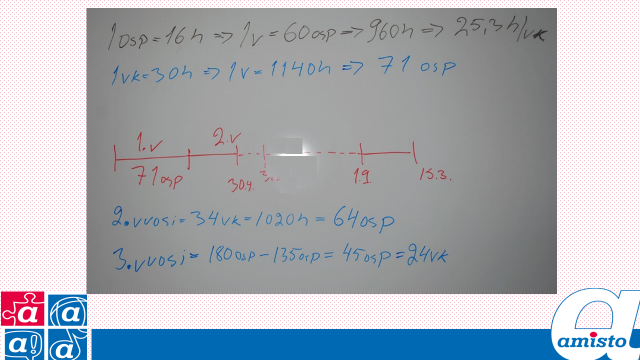 1osp=16h ⇒ 1v=60osp ⇒ 960h ⇒ 25,3h/vk
1vk=30h ⇒ 1v=1140h ⇒ 71 osp
1.v 2.v
71osp 30.4. 1.9 15.3.
2.vuosi=34vk=1020h=64osp
3.vuosi=180osp-135osp=45osp=24vk
amisto